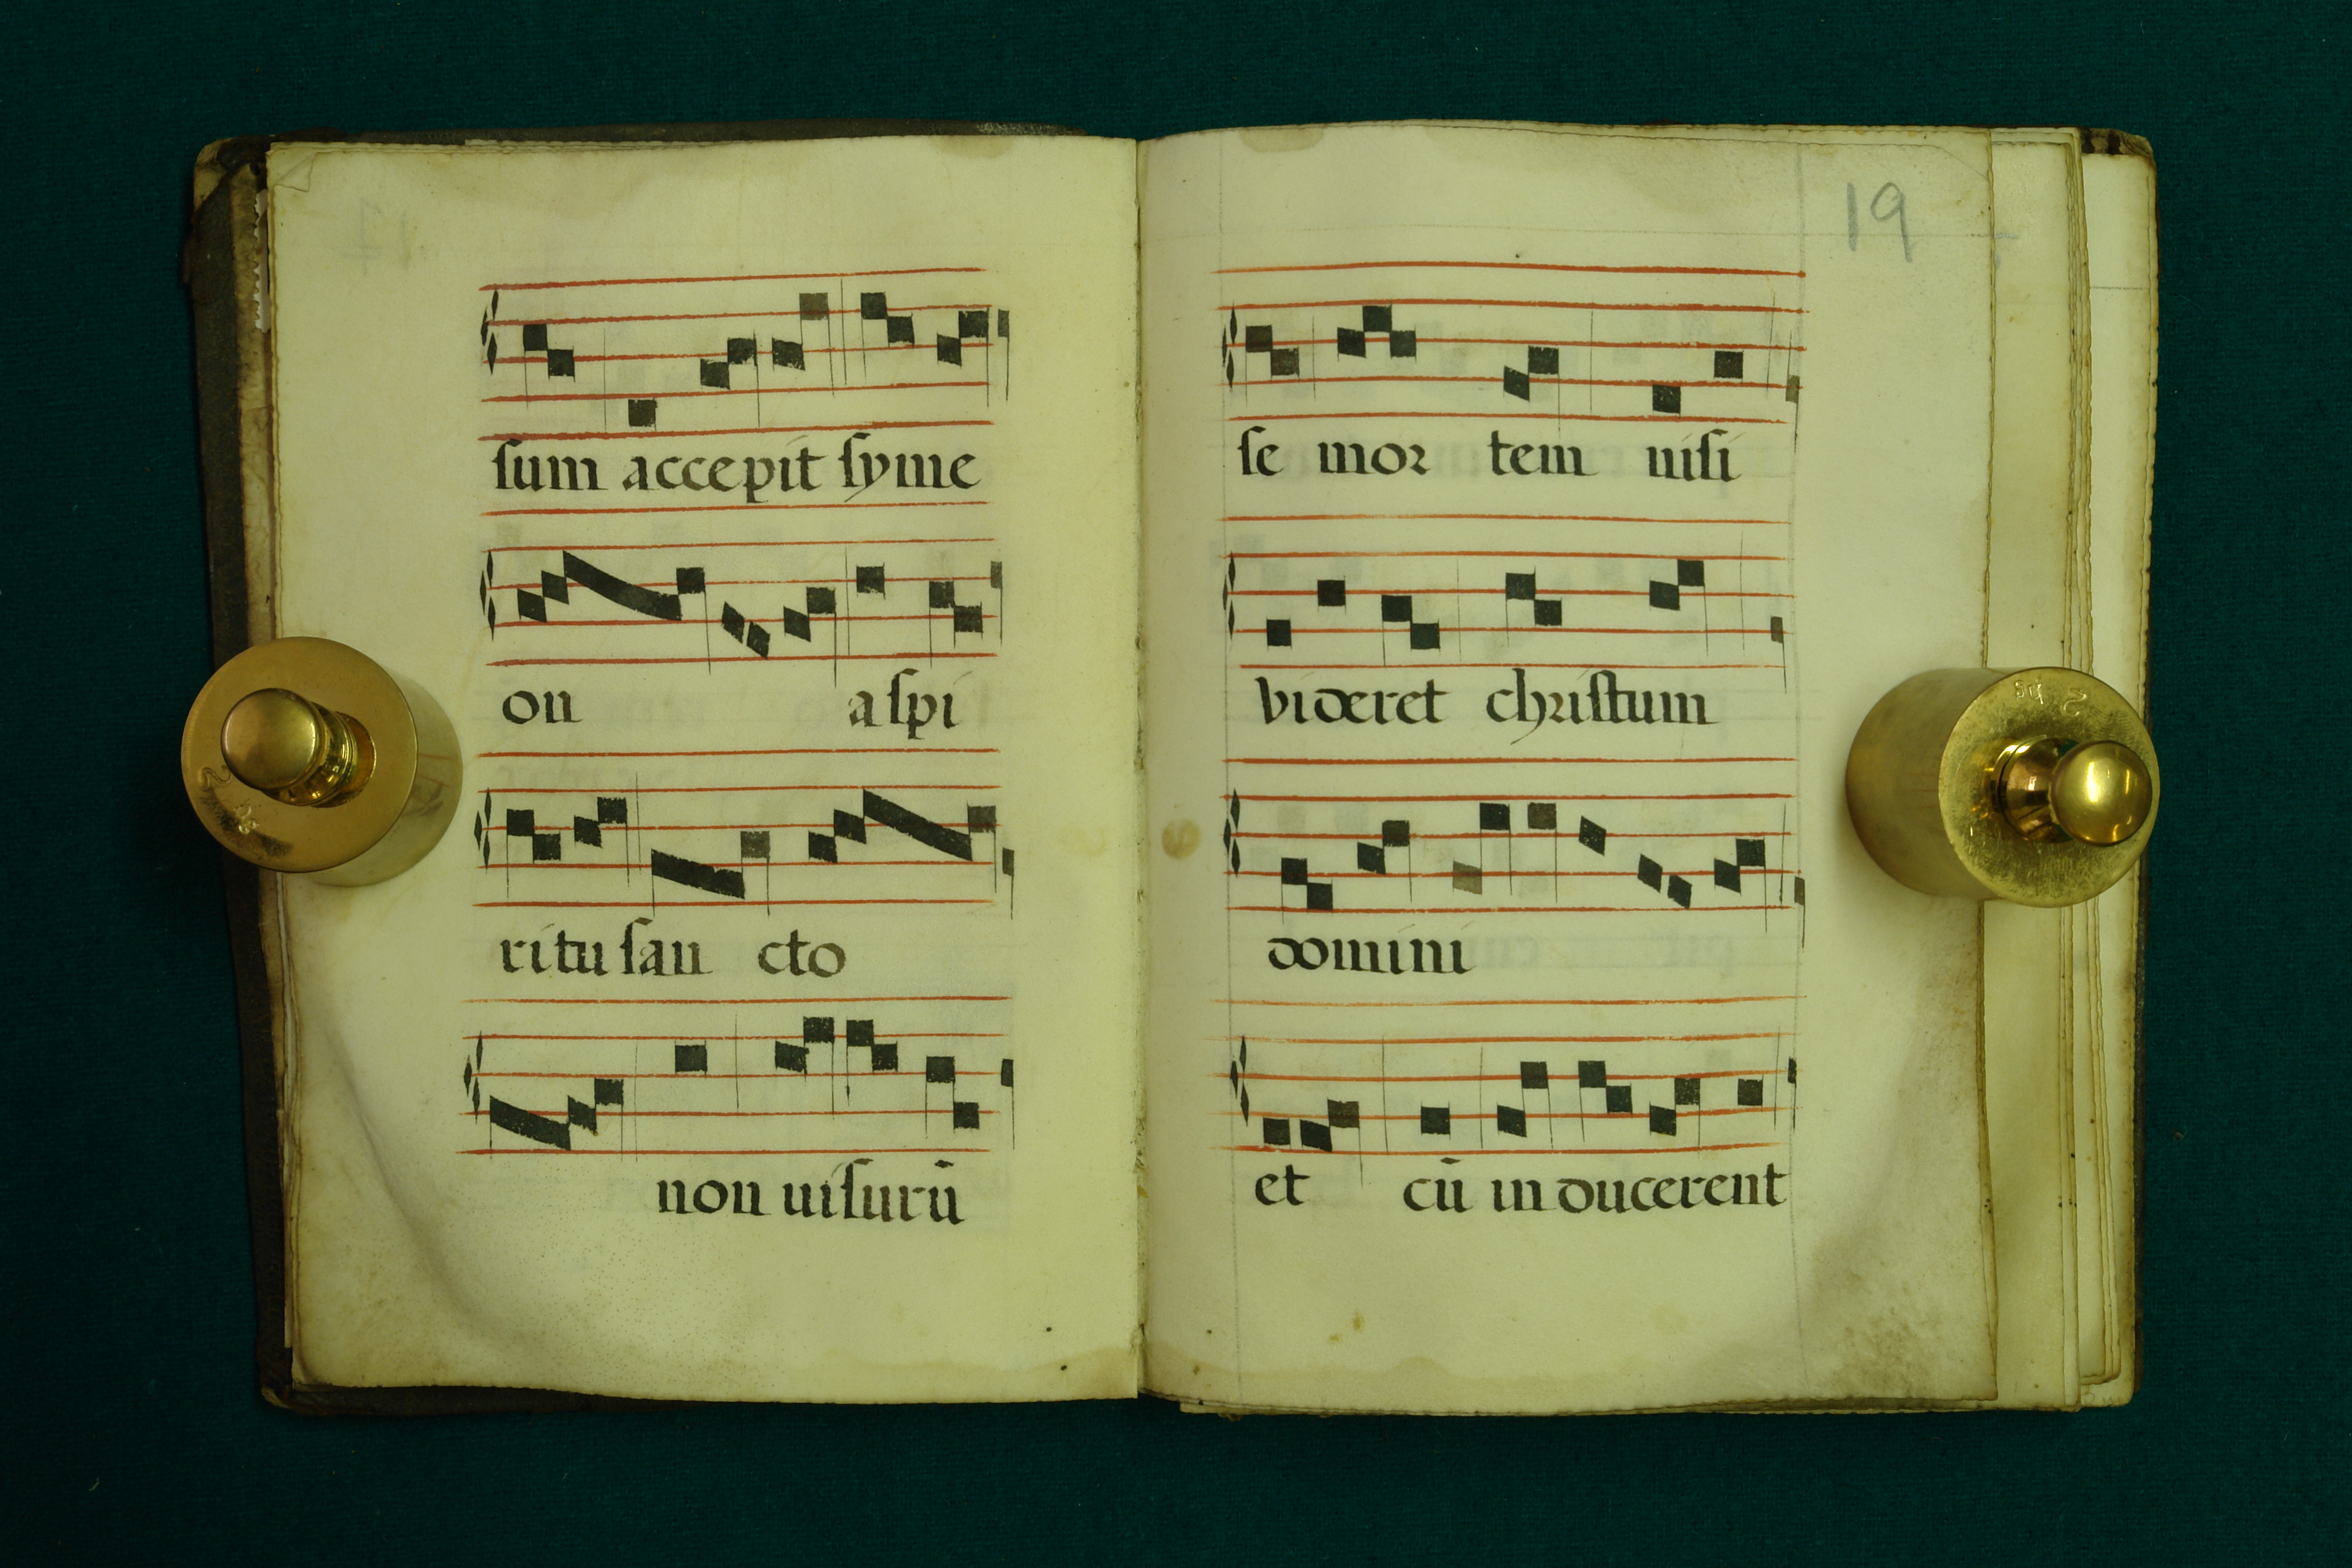 ſum accepit ſyme
on a ſpi
ritu ſan cto
non uiſurū
19
ſe mor tem niſi
videret chriſtum
domini
et cū in ducerent